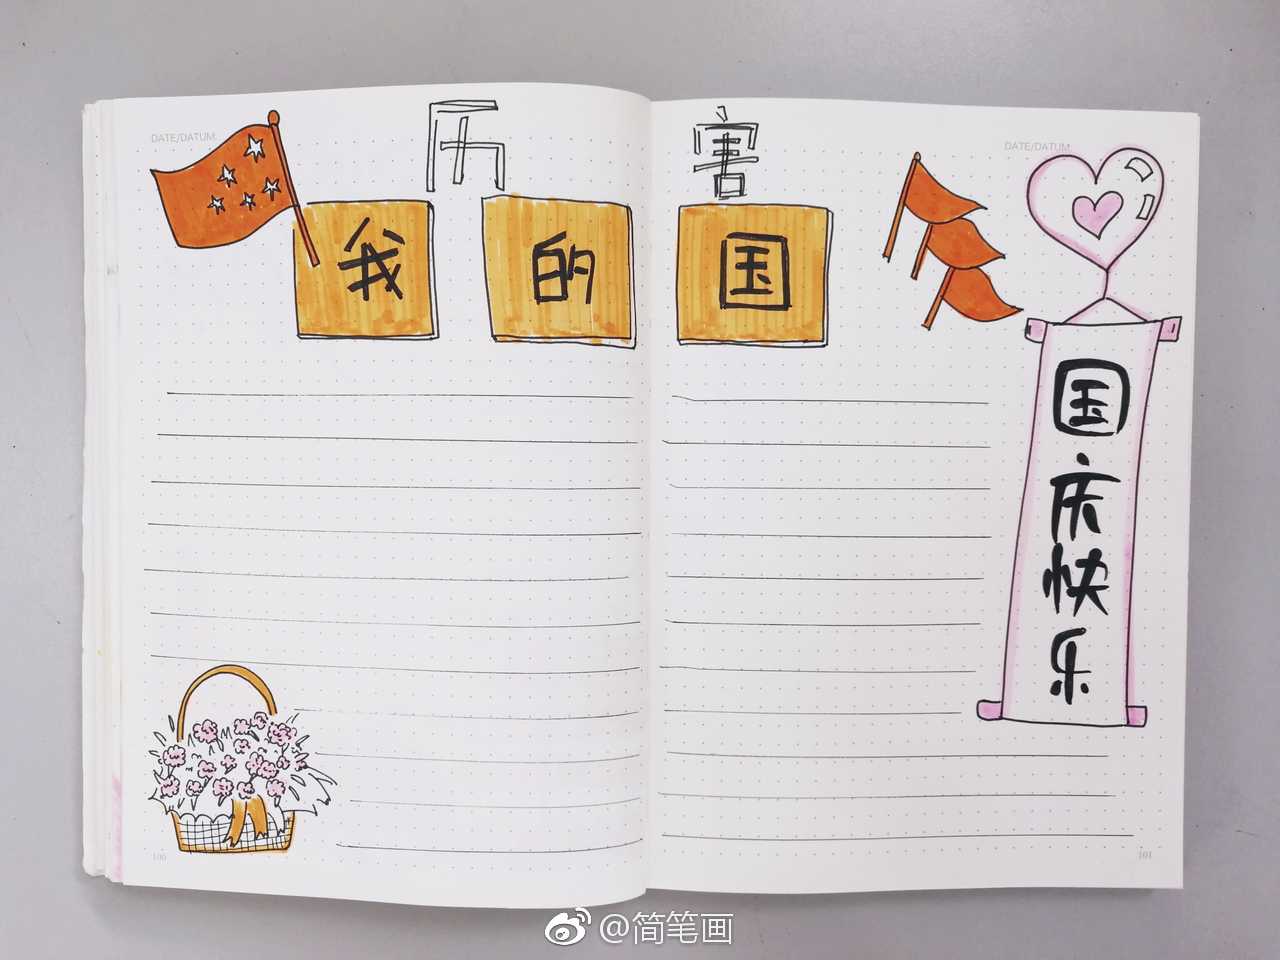 DATE/DATUM
历害
我的国
DATE/DATUM
国庆快乐
100
101
@简笔画